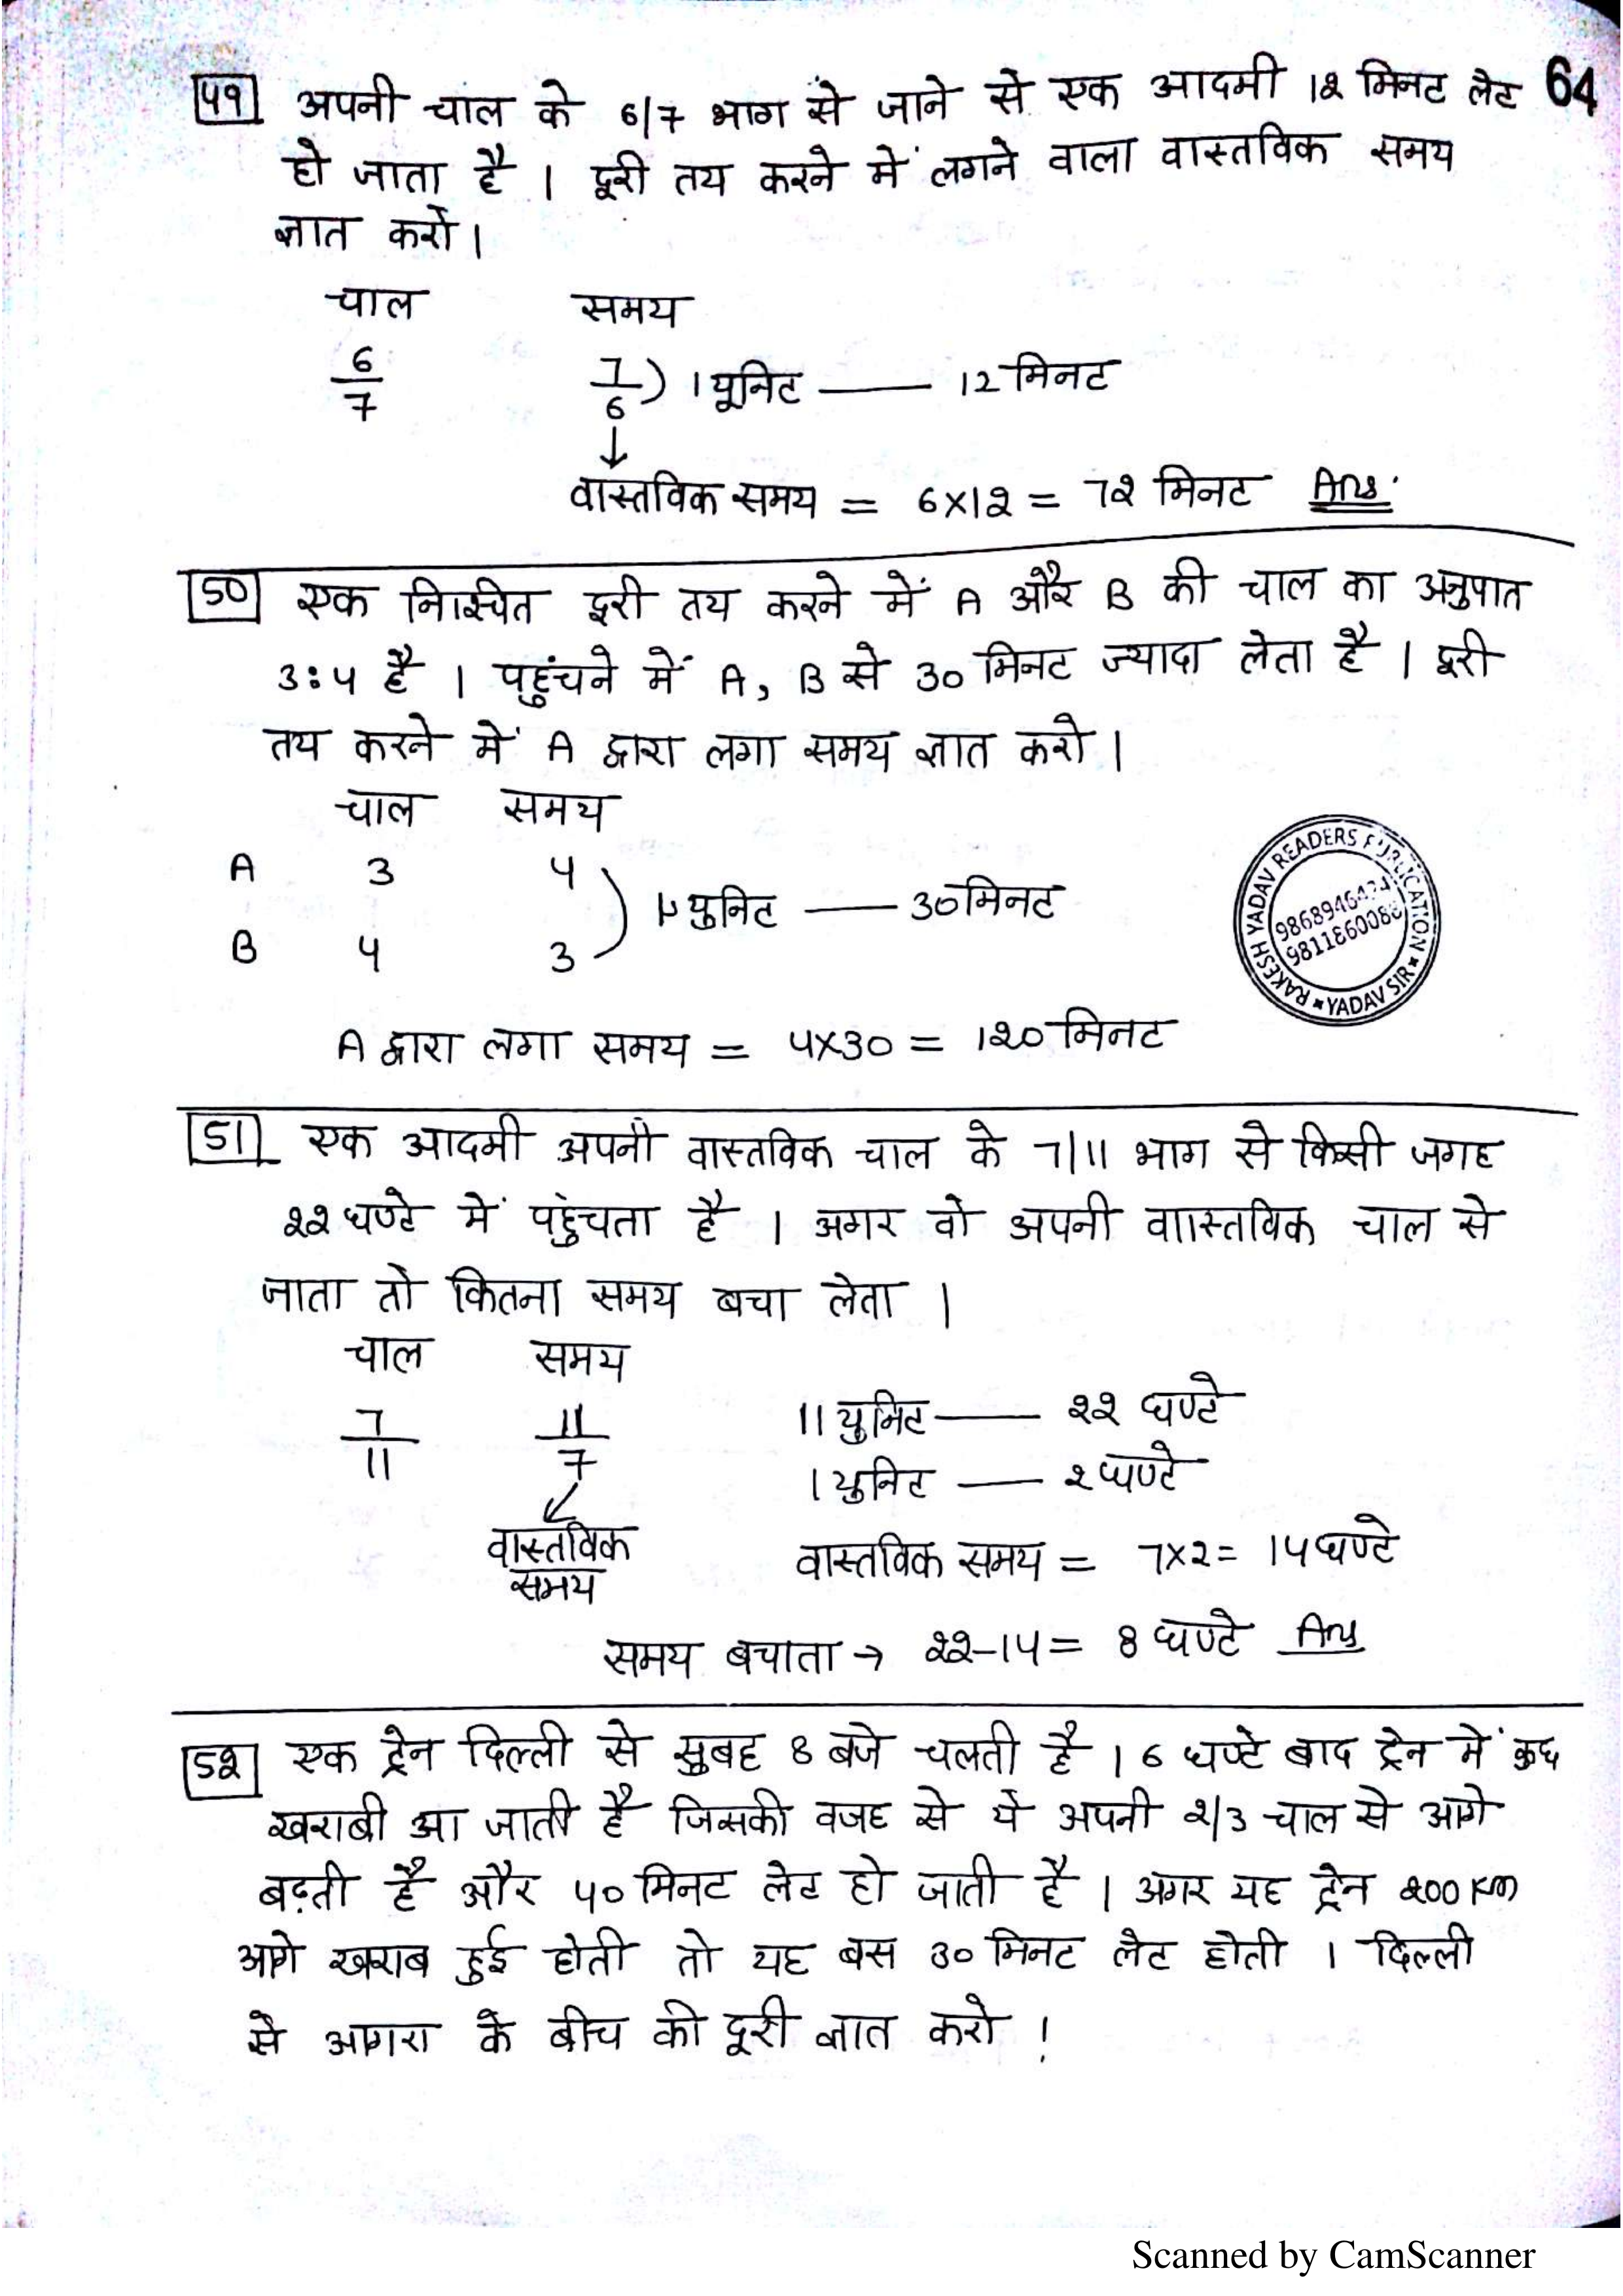 49 अपनी चाल के 6/7 भाग से जाने से एक आदमी 12 मिनट लेट 64
हो जाता है । दूरी तय करने में लगने वाला वास्तविक समय
ज्ञात करो ।
चाल समय
6/7 7/6 ) 1 यूनिट —— 12 मिनट
↓
वास्तविक समय = 6×12 = 72 मिनट Ans.
50 एक निश्चित दूरी तय करने में A और B की चाल का अनुपात
3:4 है । पहुंचने में A, B से 30 मिनट ज्यादा लेता है । दूरी
तय करने में A द्वारा लगा समय ज्ञात करो ।
चाल समय
A 3 4
) 1 युनिट —— 30 मिनट
B 4 3
A द्वारा लगा समय = 4×30 = 120 मिनट
RAKESH YADAV READERS PUBLICATION
YADAV SIR
51 एक आदमी अपनी वास्तविक चाल के 7/11 भाग से किसी जगह
22 घण्टे में पहुंचता है । अगर वो अपनी वास्तविक चाल से
जाता तो कितना समय बचा लेता ।
चाल समय
7/11 11/7 11 युनिट —— 22 घण्टे
1 युनिट —— 2 घण्टे
वास्तविक समय वास्तविक समय = 7×2 = 14 घण्टे
समय बचाता → 22-14 = 8 घण्टे Ans
52 एक ट्रेन दिल्ली से सुबह 8 बजे चलती है । 6 घण्टे बाद ट्रेन में कुछ
खराबी आ जाती है जिसकी वजह से ये अपनी 2/3 चाल से आगे
बढ़ती है और 40 मिनट लेट हो जाती है । अगर यह ट्रेन 200 Km
आगे खराब हुई होती तो यह बस 30 मिनट लेट होती । दिल्ली
से आगरा के बीच की दूरी ज्ञात करो !
Scanned by CamScanner